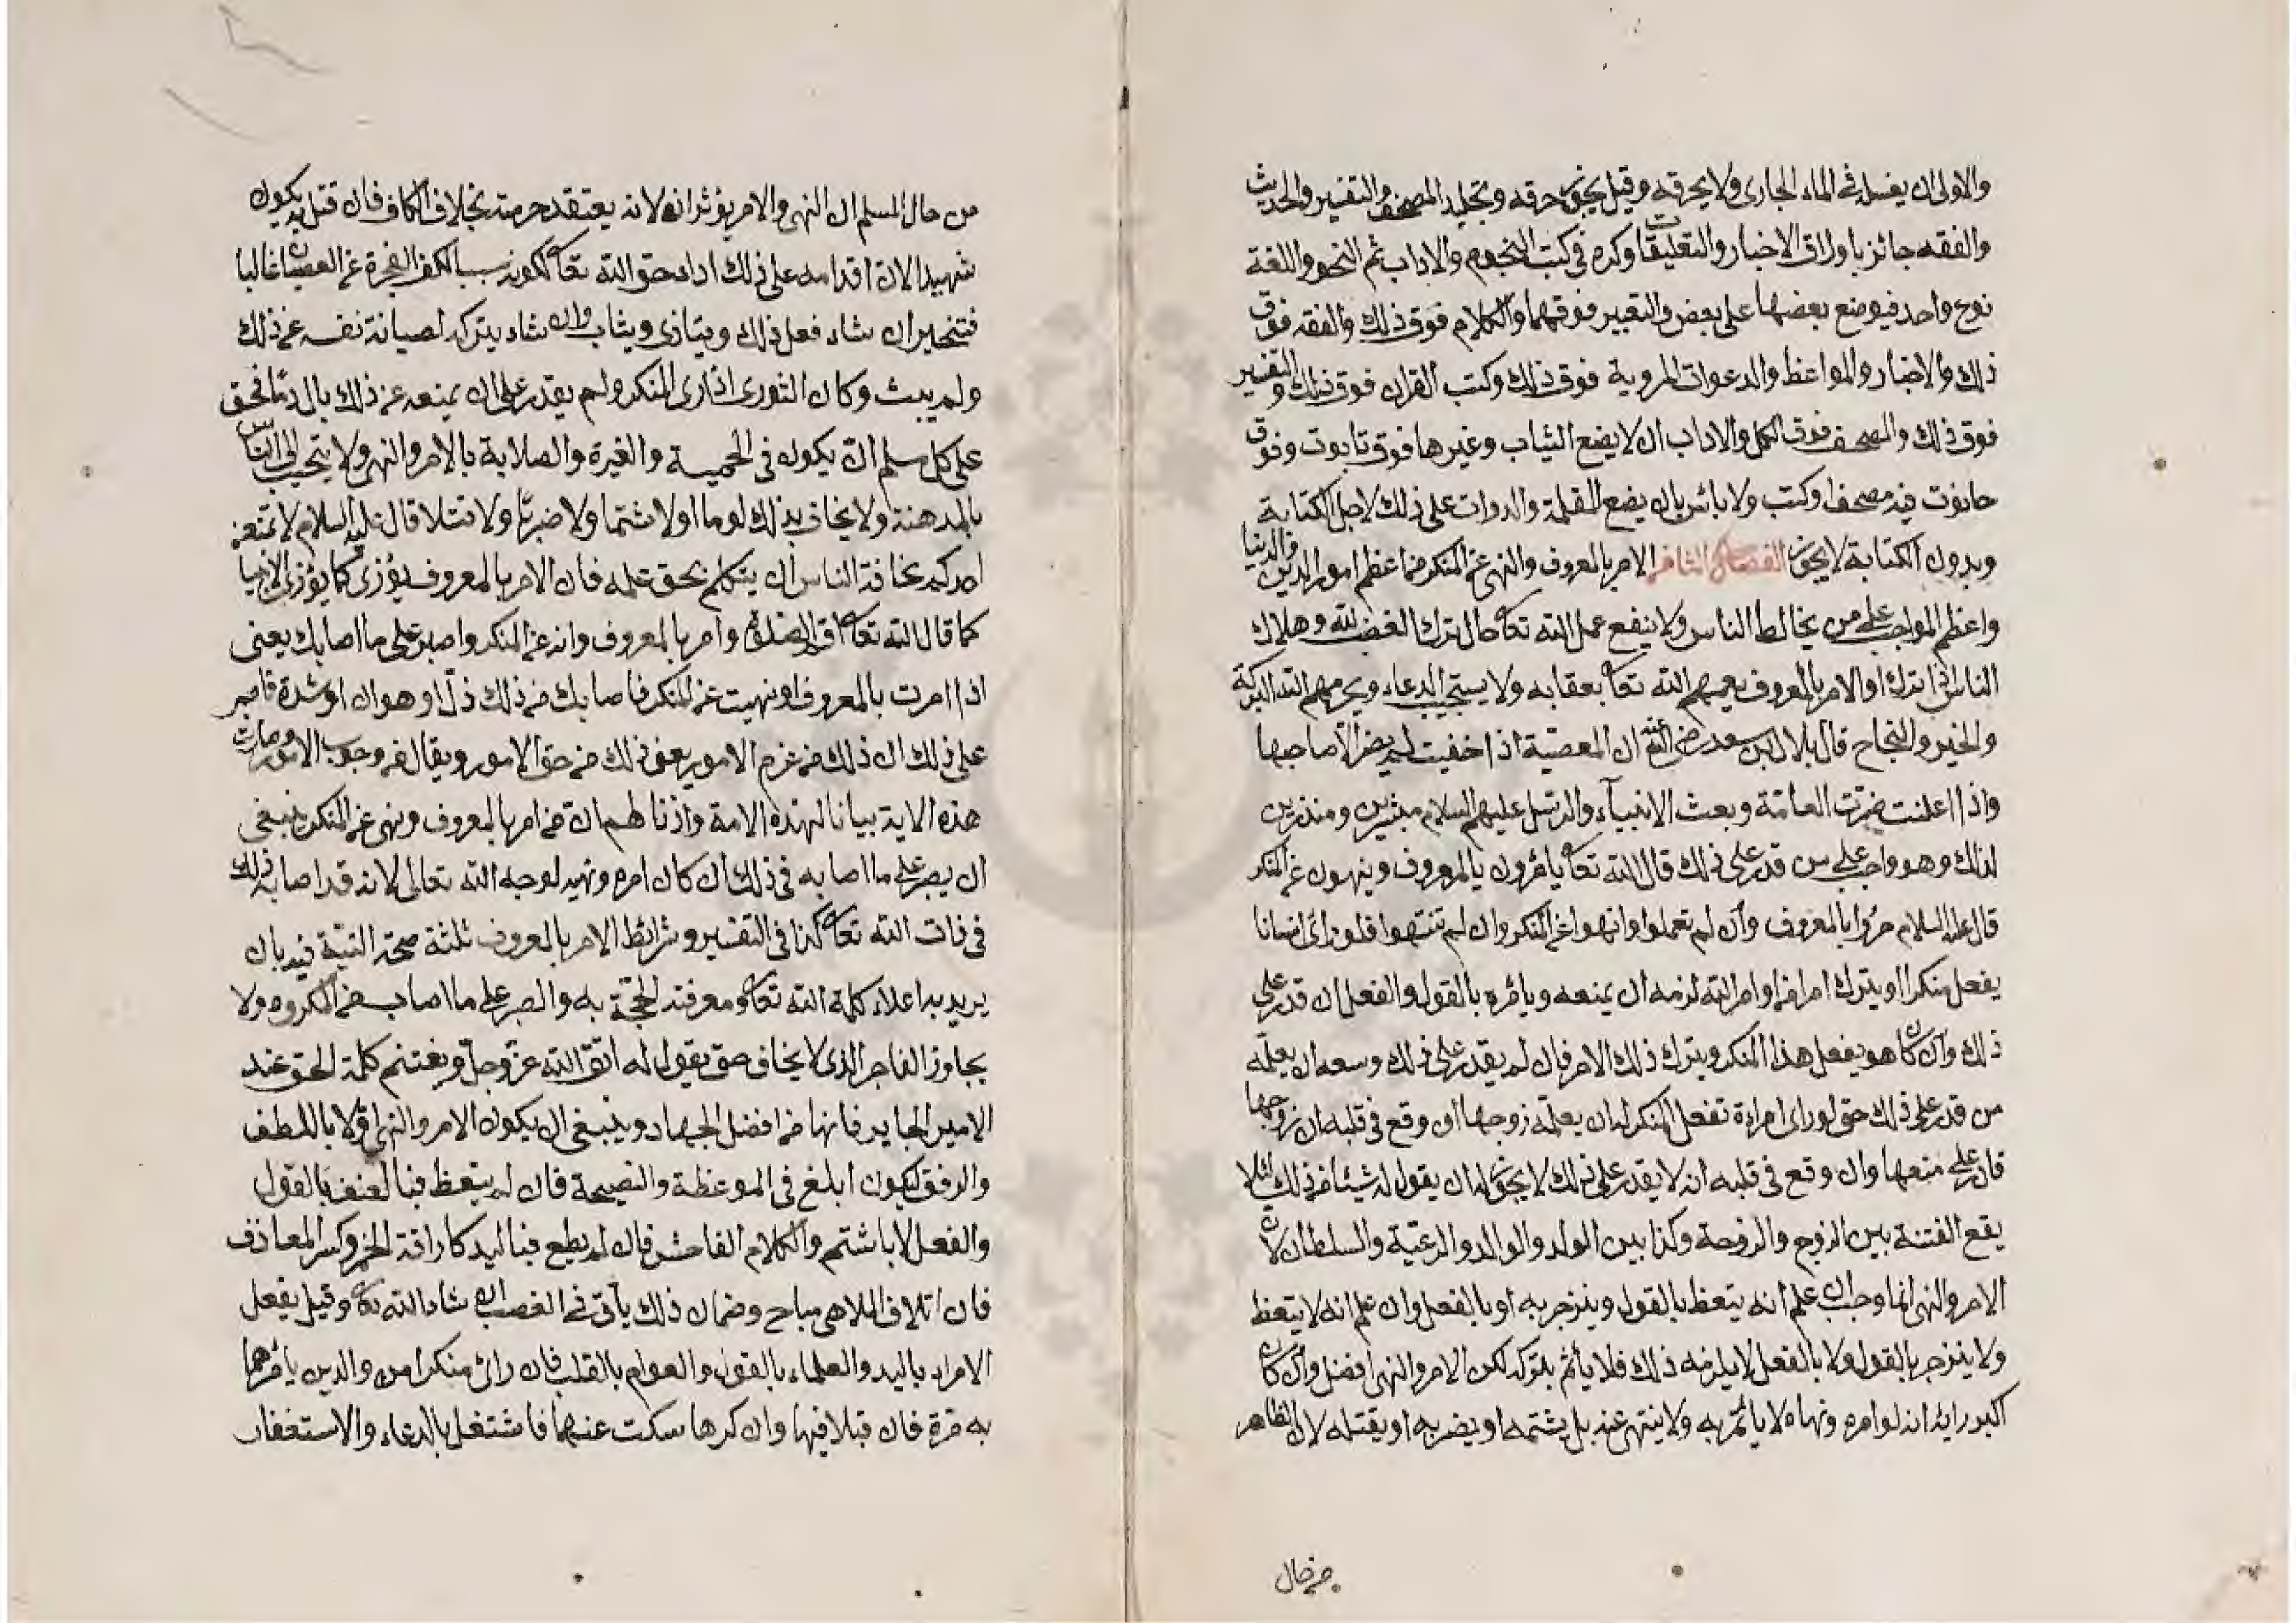 والاولى ان يغسل فى الماء الجارى ولا يحرقه وقيل يجوز حرقه وتجليد المصحف والتفسير والحديث
والفقه جائز باوراق الاخبار والتعليقات وكره فى كتب النجوم والاداب ثم النحو واللغة
نوع واحد فيوضع بعضها على بعض والتعبير فوقهما والكلام فوق ذلك والفقه فوق
ذلك والاخبار والمواعظ والدعوات المروية فوق ذلك وكتب القران فوق ذلك والتفسير
فوق ذلك والمصحف فوق الكل والاداب ان لا يضع الثياب وغيرها فوق تابوت وفوق
حانوت فيه مصحف او كتب ولا بائس بان يضع المقلمة والدوات على ذلك لاجل الكتابة
وبدون الكتابة لا يجوز الفصل الامر بالمعروف والنهى عن المنكر من اعظم امور الدين والدنيا
واعظم المواجب على من يخالط الناس ولا ينفع عمل الله تعا حال ترك الغضب لله وهلاك
الناس اذا تركوا الامر بالمعروف يعمهم الله تعا بعقابه ولا يستجيب الدعاء ويحرمهم الله البركة
والخير والنجاح قال بلال ابن سعد رضى الله عنه ان المعصية اذا خفيت لم يضر الا صاحبها
واذا اعلنت ضرت العامة وبعث الانبياء والرسل عليهم السلام مبشرين ومنذرين
لذلك وهو واجب على من قدر على ذلك قال الله تعا يامرون بالمعروف وينهون عن المنكر
قال عليه السلام مروا بالمعروف وان لم تعملوا وانهوا عن المنكر وان لم تنتهوا فلو راى انسانا
يفعل منكرا او يترك امرا من اوامر الله لزمه ان يمنعه ويأمره بالقول والفعل ان قدر على
ذلك وان كان هو يفعل هذا المنكر ويترك ذلك الامر فان لم يقدر على ذلك وسعه ان يعلمه
من قدر على ذلك حتى لو راى امراءة تفعل المنكر له ان يعلمه زوجها ان وقع فى قلبه ان زوجها
قادر على منعها وان وقع فى قلبه انه لا يقدر على ذلك لا يجوز له ان يقول له شيئا من ذلك لئلا
يقع الفتنة بين الزوج والزوجة وكذا بين الولد والوالد والرعية والسلطان لان
الامر والنهى انما وجب ان علم انه يتعظ بالقول وينزجر به او بالفعل وان علم انه لا يتعظ
ولا ينزجر بالقول ولا بالفعل لا يلزمه ذلك فلا يأثم بتركه لكن الامر والنهى افضل وان كان
اكبر رايه انه لو امره ونهاه لا يأتمر به ولا ينتهى عنه بل يشتمه او يضربه او يقتله لان الظاهر
من حال
من حال المسلم ان النهى والامر يؤثر انه لانه يعتقد حرمته بخلاف الكافر فان قتل به يكون
شهيدا لان اقدامه على ذلك اداء حق الله تعا لكونه سببا لكف الفجرة عن العصيان غالبا
فتخير ان شاء فعل ذلك ويتاذى ويثاب وان شاء يتركه لصيانة نفسه عن ذلك
ولم يبث وكان الثورى اذا راى المنكر ولم يقدر على ان يمنعه عن ذلك بال دما فحق
على كل مسلم ان يكون فى الحمية والغيرة والصلابة بالامر والنهى ولا يتحبب الى الناس
بالمدهنة ولا يخاف بذلك لوما اولا شتما ولا ضربا ولا قتلا قال عليه السلام لا تمنعن
احدكم مخافة الناس ان يتكلم بحق علمه فان الامر بالمعروف يؤزى كما يؤزى الانبيا
كما قال الله تعا اقم الصلوة وامر بالمعروف وانه عن المنكر واصبر على ما اصابك يعنى
اذا امرت بالمعروف او نهيت عن المنكر فاصابك من ذلك ذل او هوان او شدة فاصبر
على ذلك ان ذلك من عزم الامور يعنى ذلك من حق الامور ويقال من وجوب الامور وصارت
هذه الاية بيانا لهذه الامة واذنا لهم ان من امر بالمعروف ونهى عن المنكر ينبغى
ان يصبر على ما اصابه فى ذلك ان كان امره ونهيه لوجه الله تعالى لانه قد اصابه ذلك
فى ذات الله تعا كذا فى التفسير وشرائط الامر بالمعروف ثلثة صحة النية فيه بان
يريد به اعلاء كلمة الله تعا ومعرفة الحجة به والصبر على ما اصاب من المكروه ولا
يجاوز الفاجر الذى لا يخاف حتى يقول له اتق الله عز وجل ويغتنم كلمة الحق عند
الامير الجاير فانها من افضل الجهاد وينبغى ان يكون الامر والنهى اولا باللطف
والرفق ليكون ابلغ فى الموعظة والنصيحة فان لم يتعظ فبالعنف بالقول
والفعل لا باشتم والكلام الفاحش فان لم يطع فباليد كاراقة الخمر وكسر المعازف
فان اتلاف الملاهى مباح وضمان ذلك يأتى فى الغصب ان شاء الله تعا وقيل يفعل
الامراء باليد والعلماء بالقول والعوام بالقلب فان رائ منكرا من والدين يأمرهما
به مرة فان قبلا فبها وان كرها سكت عنهما فاشتغل بالدعاء والاستغفار